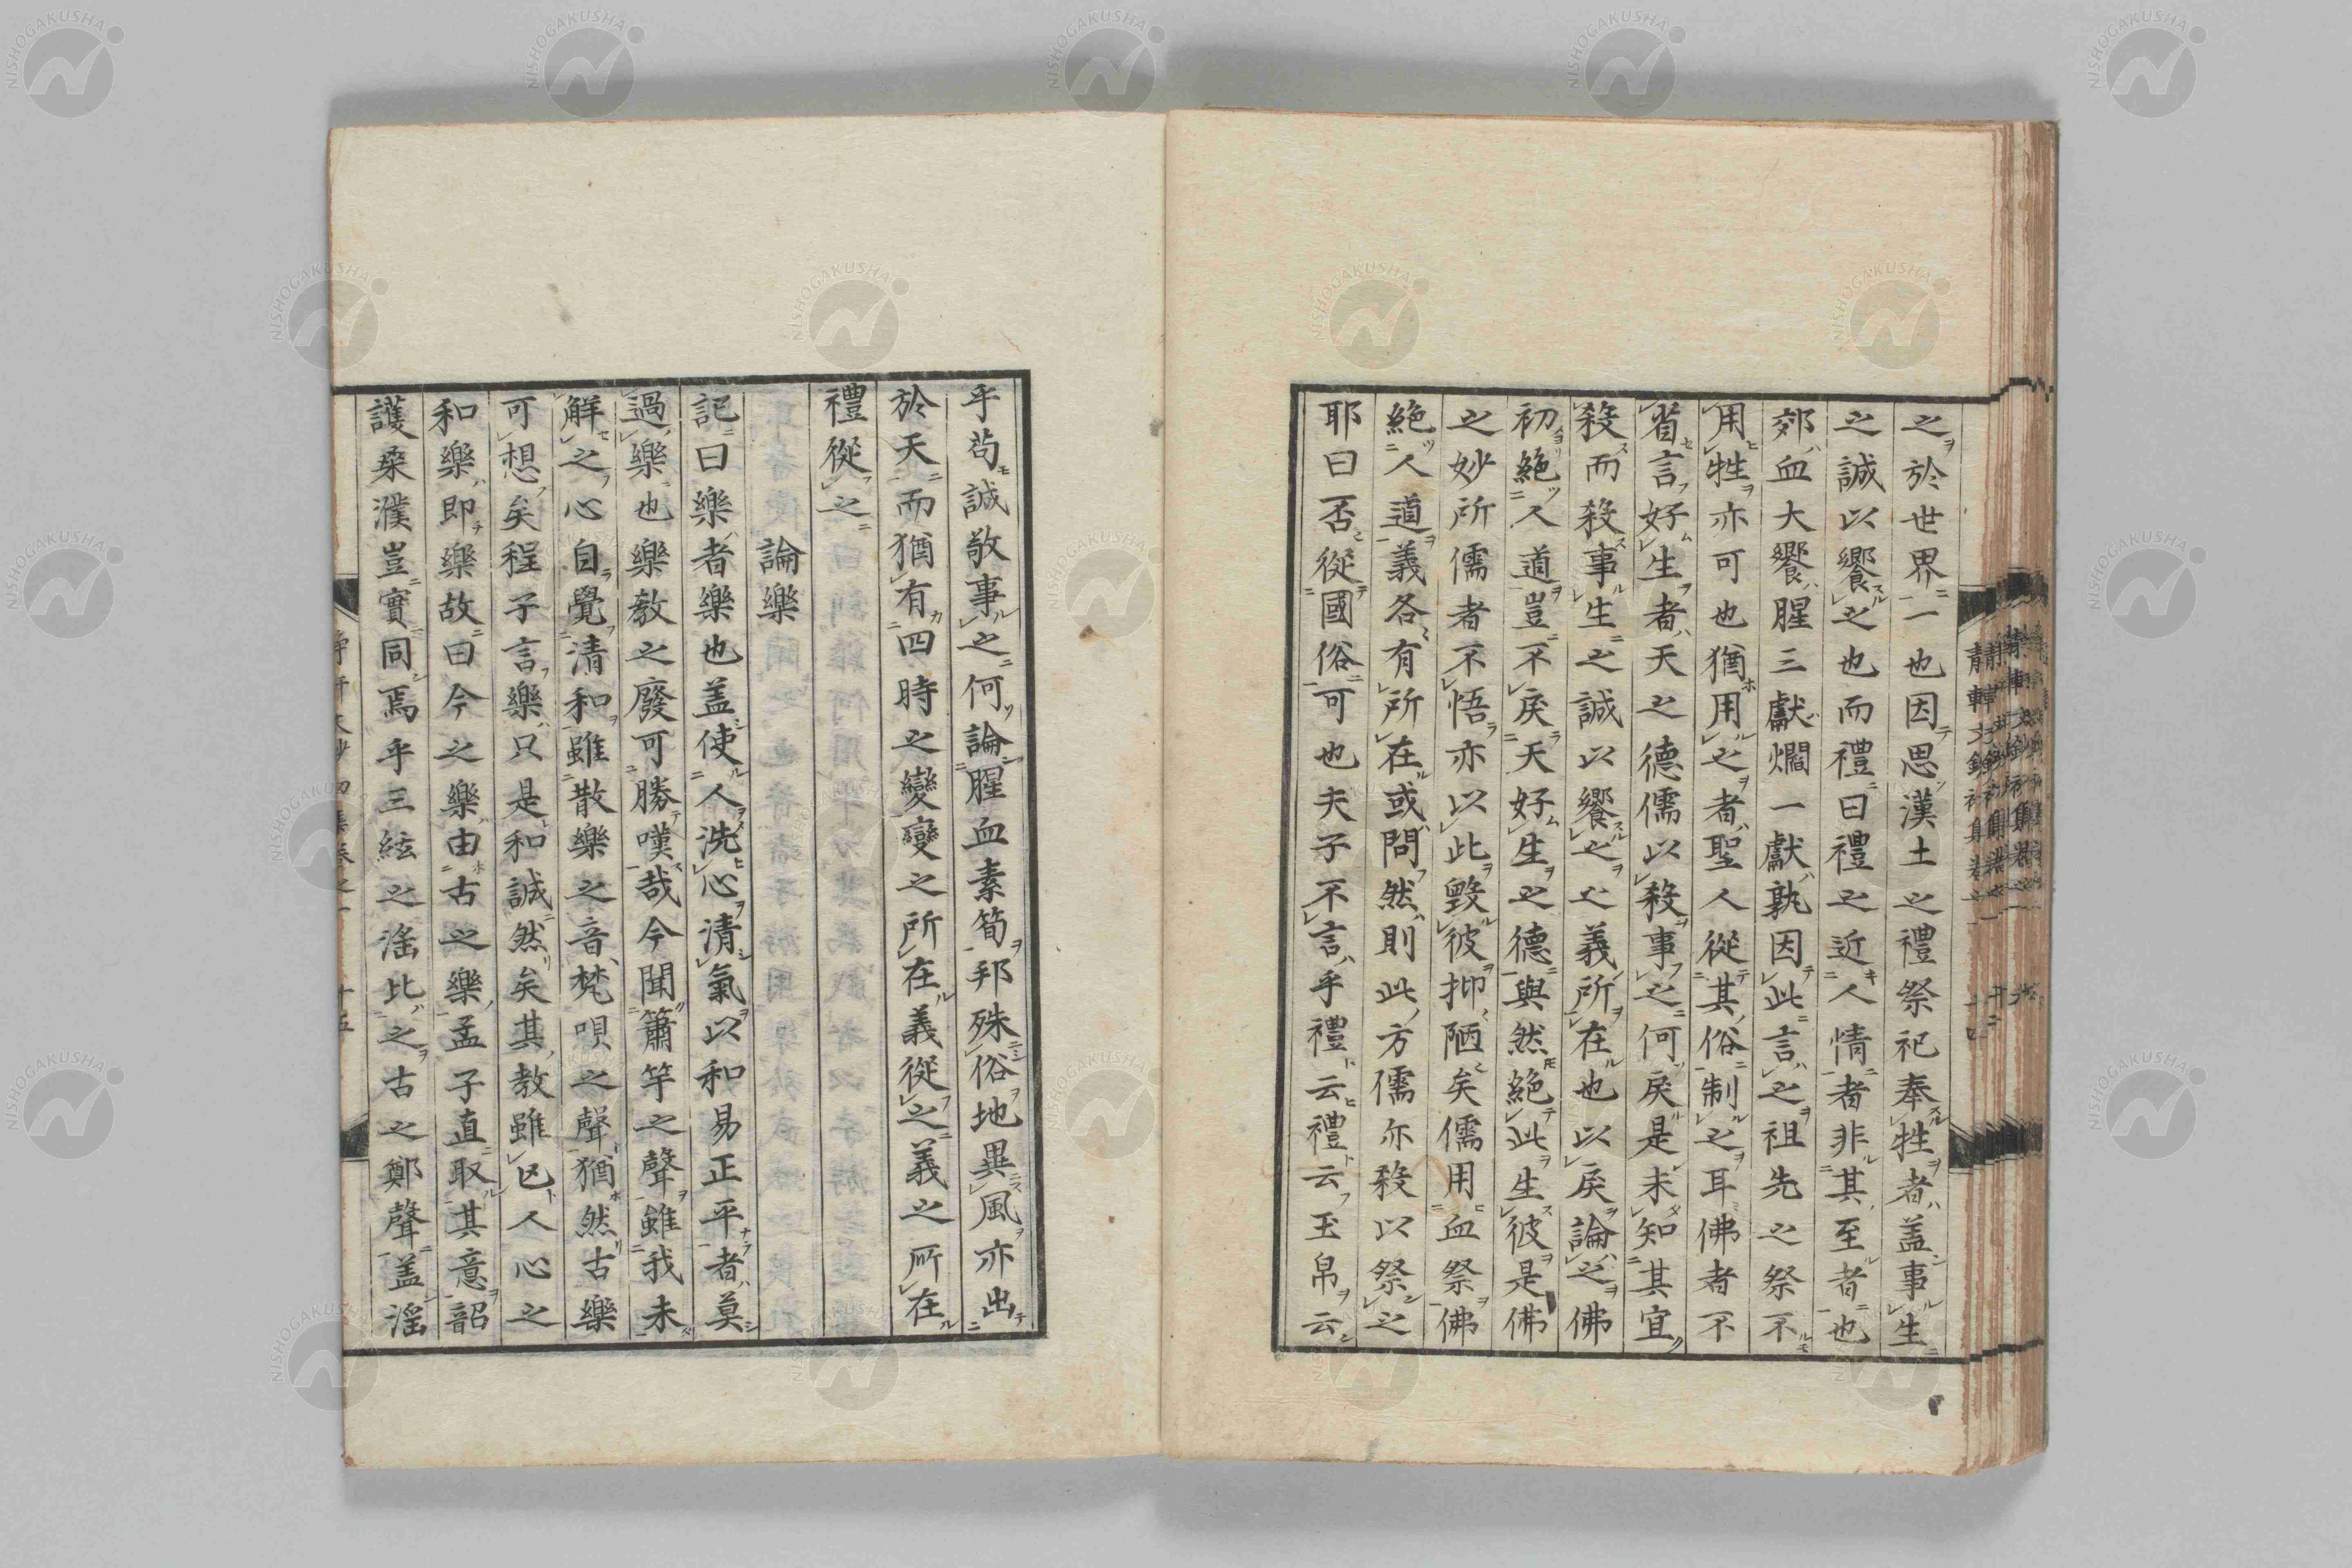 之於世界一也因思漢土之禮祭祀奉牲者盖事生
之誠以饗之也而禮曰禮之近人情者非其至者也
郊血大饗腥三獻爓一獻孰因此言之祖先之祭不
用牲亦可也猶用之者聖人從其俗制之耳佛者不
省言好生者天之德儒以殺事之何戾是未知其宜
殺而殺事生之誠以饗之之義所在也以戾論之佛
初絶人道豈不戾天好生之德與然絶此生彼是佛
之妙所儒者不悟亦以此毀彼抑陋矣儒用血祭佛
絶人道義各有所在或問然則此方儒亦殺以祭之
耶曰否從國俗可也夫子不言乎禮云禮云玉帛云
乎苟誠敬事之何論腥血素筍邦殊俗地異風亦出
於天而猶有四時之變變之所在義從之義之所在
禮從之
論樂
記曰樂者樂也盖使人洗心清氣以和易正平者莫
過樂也樂教之廢可勝嘆哉今聞簫竽之聲雖我未
解之心自覺清和雖散樂之音梵唄之聲猶然古樂
可想矣程子言樂只是和誠然矣其教雖已人心之
和樂即樂故曰今之樂由古之樂孟子直取其意韶
護桑濮豈實同焉乎三絃之滛比之古之鄭聲盖滛
NISHOGAKUSHA